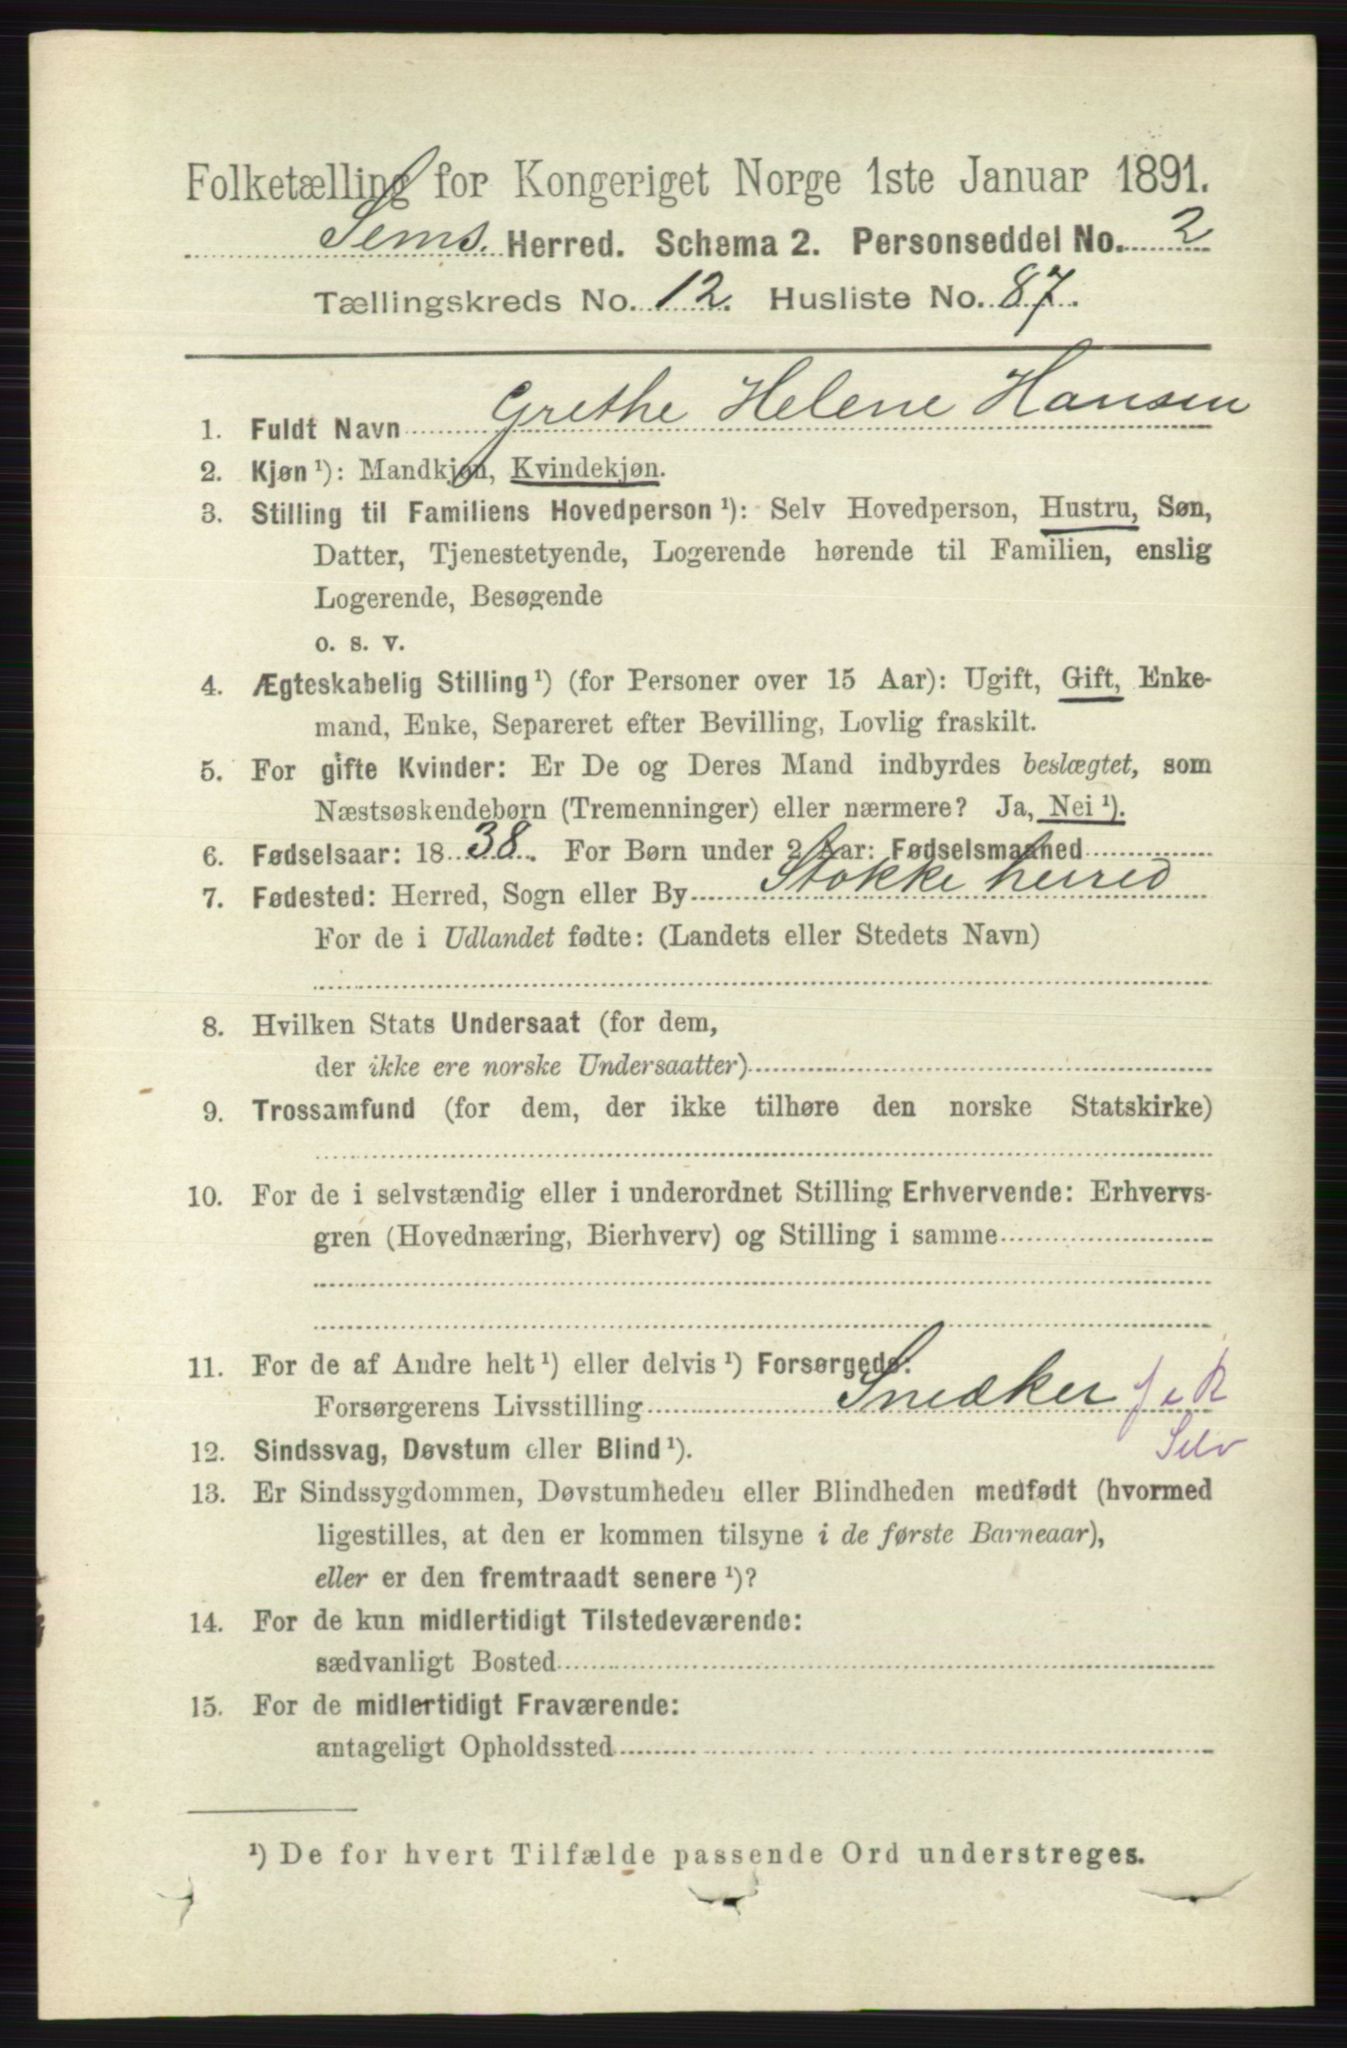 Folketælling for Kongeriget Norge 1ste Januar 1891.
Sems. Herred. Schema 2. Personseddel No. 2
Tællingskreds No. 12. Husliste No. 87.
1. Fuldt Navn Grethe Helene Hansen
2. Kjøn ¹): Mandkjøn, Kvindekjøn.
3. Stilling til Familiens Hovedperson ¹): Selv Hovedperson, Hustru, Søn,
Datter, Tjenestetyende, Logerende hørende til Familien, enslig
Logerende, Besøgende
o. s. v.
4. Ægteskabelig Stilling ¹) (for Personer over 15 Aar): Ugift, Gift, Enke-
mand, Enke, Separeret efter Bevilling, Lovlig fraskilt.
5. For gifte Kvinder: Er De og Deres Mand indbyrdes beslægtet, som
Næstsøskendebørn (Tremenninger) eller nærmere? Ja, Nei ¹).
6. Fødselsaar: 1838. For Børn under 2 Aar: Fødselsmaaned
7. Fødested: Herred, Sogn eller By Stokke herred
For de i Udlandet fødte: (Landets eller Stedets Navn)
8. Hvilken Stats Undersaat (for dem,
der ikke ere norske Undersaatter)
9. Trossamfund (for dem, der ikke tilhøre den norske Statskirke)
10. For de i selvstændig eller i underordnet Stilling Erhvervende: Erhvervs-
gren (Hovednæring, Bierhverv) og Stilling i samme
11. For de af Andre helt ¹) eller delvis ¹) Forsørgede:
Forsørgerens Livsstilling Snedker
Selv
12. Sindssvag, Døvstum eller Blind ¹).
13. Er Sindssygdommen, Døvstumheden eller Blindheden medfødt (hvormed
ligestilles, at den er kommen tilsyne i de første Barneaar),
eller er den fremtraadt senere ¹)?
14. For de kun midlertidigt Tilstedeværende:
sædvanligt Bosted
15. For de midlertidigt Fraværende:
antageligt Opholdssted
¹) De for hvert Tilfælde passende Ord understreges.